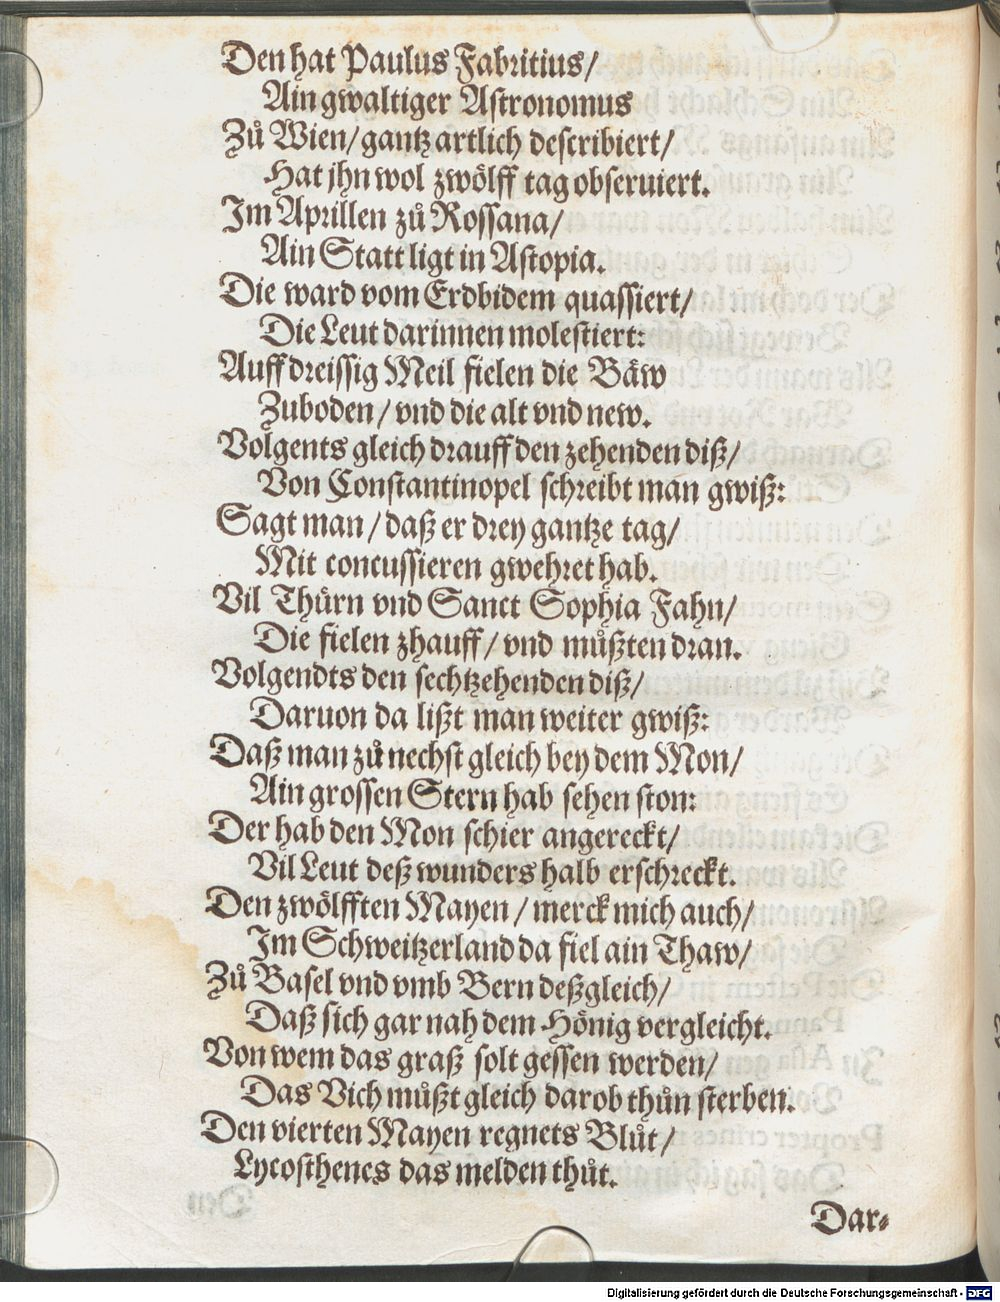 Den hat Paulus Fabritius/
Ain gwaltiger Astronomus
Zů Wien/ gantz artlich describiert/
Hat jhn wol zwölff tag obseruiert.
Im Aprillen zů Rossana/
Ain Statt ligt in Astopia.
Die ward vom Erdbidem quassiert/
Die Leut darinnen molestiert:
Auff dreissig Meil fielen die Bäw
Zuboden/ vnd die alt vnd new.
Volgents gleich drauff den zehenden diß/
Von Constantinopel schreibt man gwiß:
Sagt man/ daß er drey gantze tag/
Mit concussieren gwehret hab.
Vil Thürn vnd Sanct Sophia Fahn/
Die fielen zhauff/ vnd můßten dran.
Volgendts den sechtzehenden diß/
Daruon da lißt man weiter gwiß:
Daß man zů nechst gleich bey dem Mon/
Ain grossen Stern hab sehen ston:
Der hab den Mon schier angereckt/
Vil Leut deß wunders halb erschreckt.
Den zwölfften Mayen/ merck mich auch/
Im Schweitzerland da fiel ain Thaw/
Zů Basel vnd vmb Bern deßgleich/
Daß sich gar nah dem Hönig vergleicht.
Von wem das graß solt gessen werden/
Das Vich můßt gleich darob thůn sterben.
Den vierten Mayen regnets Blůt/
Lycosthenes das melden thůt.
Dar-
Digitalisierung gefördert durch die Deutsche Forschungsgemeinschaft - DFG